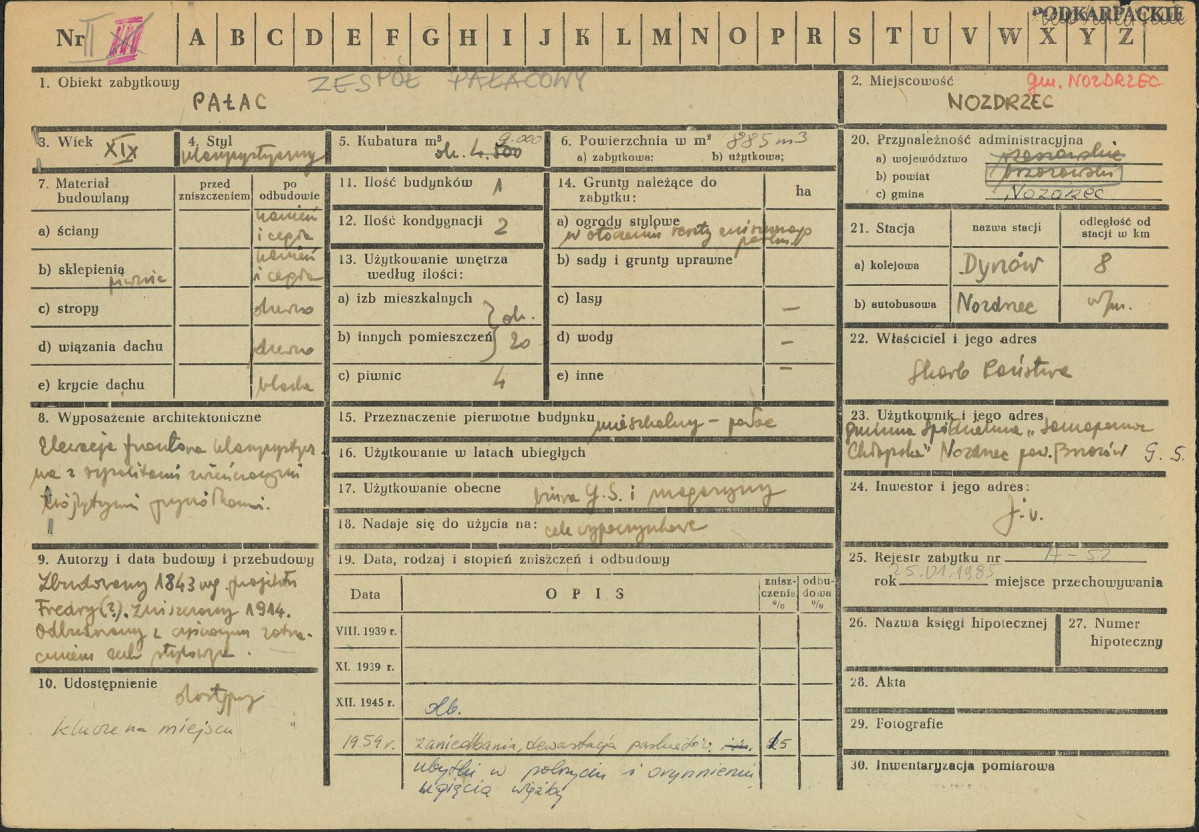 PODKARPACKIE
Nr II III A B C D E F G H I J K L M N O P R S T U V W X Y Z
1. Obiekt zabytkowy ZESPÓŁ PAŁACOWY
PAŁAC
2. Miejscowość gm. NOZDRZEC
NOZDRZEC
3. Wiek XIX
4. Styl klasycystyczny
5. Kubatura m³ ok. 4.500 9.000
6. Powierzchnia w m² 885 m3
a) zabytkowa: b) użytkowa;
7. Materiał budowlany
przed zniszczeniem
po odbudowie
a) ściany kamień i cegła
b) sklepienia piwnic kamień i cegła
c) stropy drewno
d) wiązania dachu drewno
e) krycie dachu blacha
8. Wyposażenie architektoniczne
Elewacja frontowa klasycystycz
na z ryzalitami zwieńczonymi
trójkątnymi przyczółkami.
9. Autorzy i data budowy i przebudowy
Zbudowany 1843 wg. projektu
Fredry(?). Zniszczony 1914.
Odbudowany z częściowym zatra-
ceniem cech stylowych.
10. Udostępnienie dostępny
klucze na miejscu
11. Ilość budynków 1
12. Ilość kondygnacji 2
13. Użytkowanie wnętrza według ilości:
a) izb mieszkalnych
b) innych pomieszczeń ok. 20
c) piwnic 4
14. Grunty należące do zabytku: ha
a) ogrody stylowe
w otoczeniu resztki zniszczonego parku
b) sady i grunty uprawne
c) lasy –
d) wody –
e) inne –
15. Przeznaczenie pierwotne budynku mieszkalny – pałac
16. Użytkowanie w latach ubiegłych
17. Użytkowanie obecne biura G.S. i magazyny
18. Nadaje się do użycia na: cele wypoczynkowe
19. Data, rodzaj i stopień zniszczeń i odbudowy
Data OPIS znisz-czenie % odbu-dowa %
VIII. 1939 r.
XI. 1939 r.
XII. 1945 r. db.
1959 r. zaniedbania, dewastacja 15
ubytki w pokryciu i orynnieniu
ugięcia więźby
20. Przynależność administracyjna
a) województwo rzeszowskie
b) powiat brzozowski
c) gmine Nozdrzec
21. Stacja nazwa stacji odległość od stacji w km
a) kolejowa Dynów 8
b) autobusowa Nozdrzec w/m.
22. Właściciel i jego adres
Skarb Państwa
23. Użytkownik i jego adres
Gminna Spółdzielnia „Samopomoc
Chłopska" Nozdrzec pow. Brzozów G. S.
24. Inwestor i jego adres:
j.w.
25. Rejestr zabytku nr A-52
rok 25.01.1985 miejsce przechowywania
26. Nazwa księgi hipotecznej
27. Numer hipoteczny
28. Akta
29. Fotografie
30. Inwentaryzacja pomiarowa